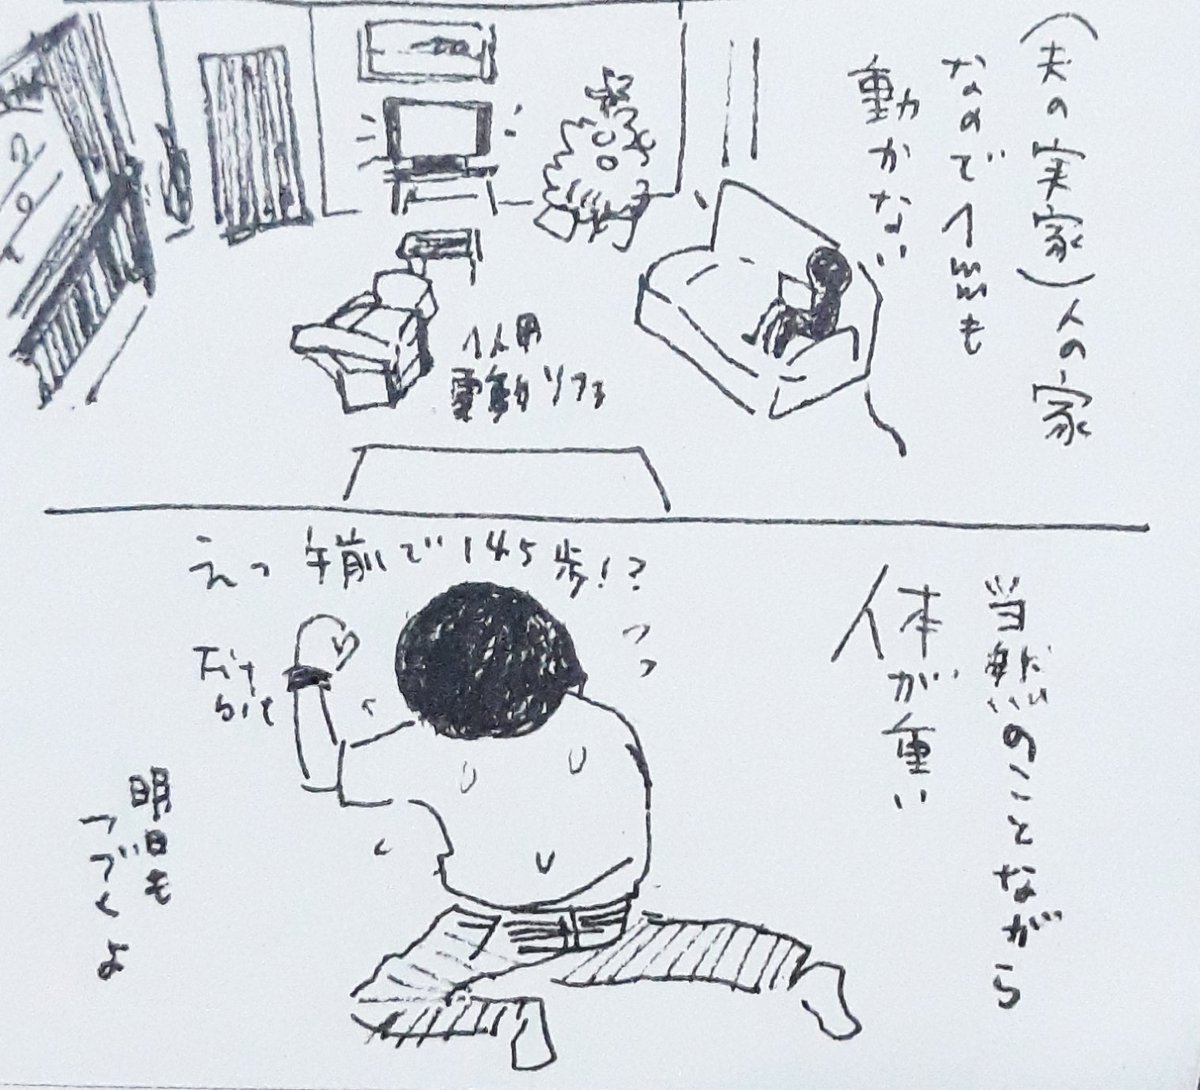 (夫の実家)人の家
なので1ミリも
動かない
1人用
電動ソファ
当然のことながら
体が重い
えっ 午前で145歩!?
明日も
つづくよ